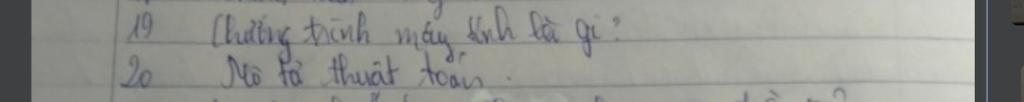 19 Chương trình máy tính là gì?
20 Mô tả thuật toán.